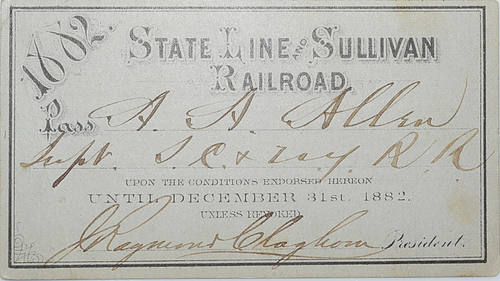 1882.
STATE LINE AND SULLIVAN
RAILROAD.
Pass A. A. Allen
Supt. R R
UPON THE CONDITIONS ENDORSED HEREON
UNTIL DECEMBER 31st. 1882.
UNLESS REVOKED.
J Raymond Claghorn President.